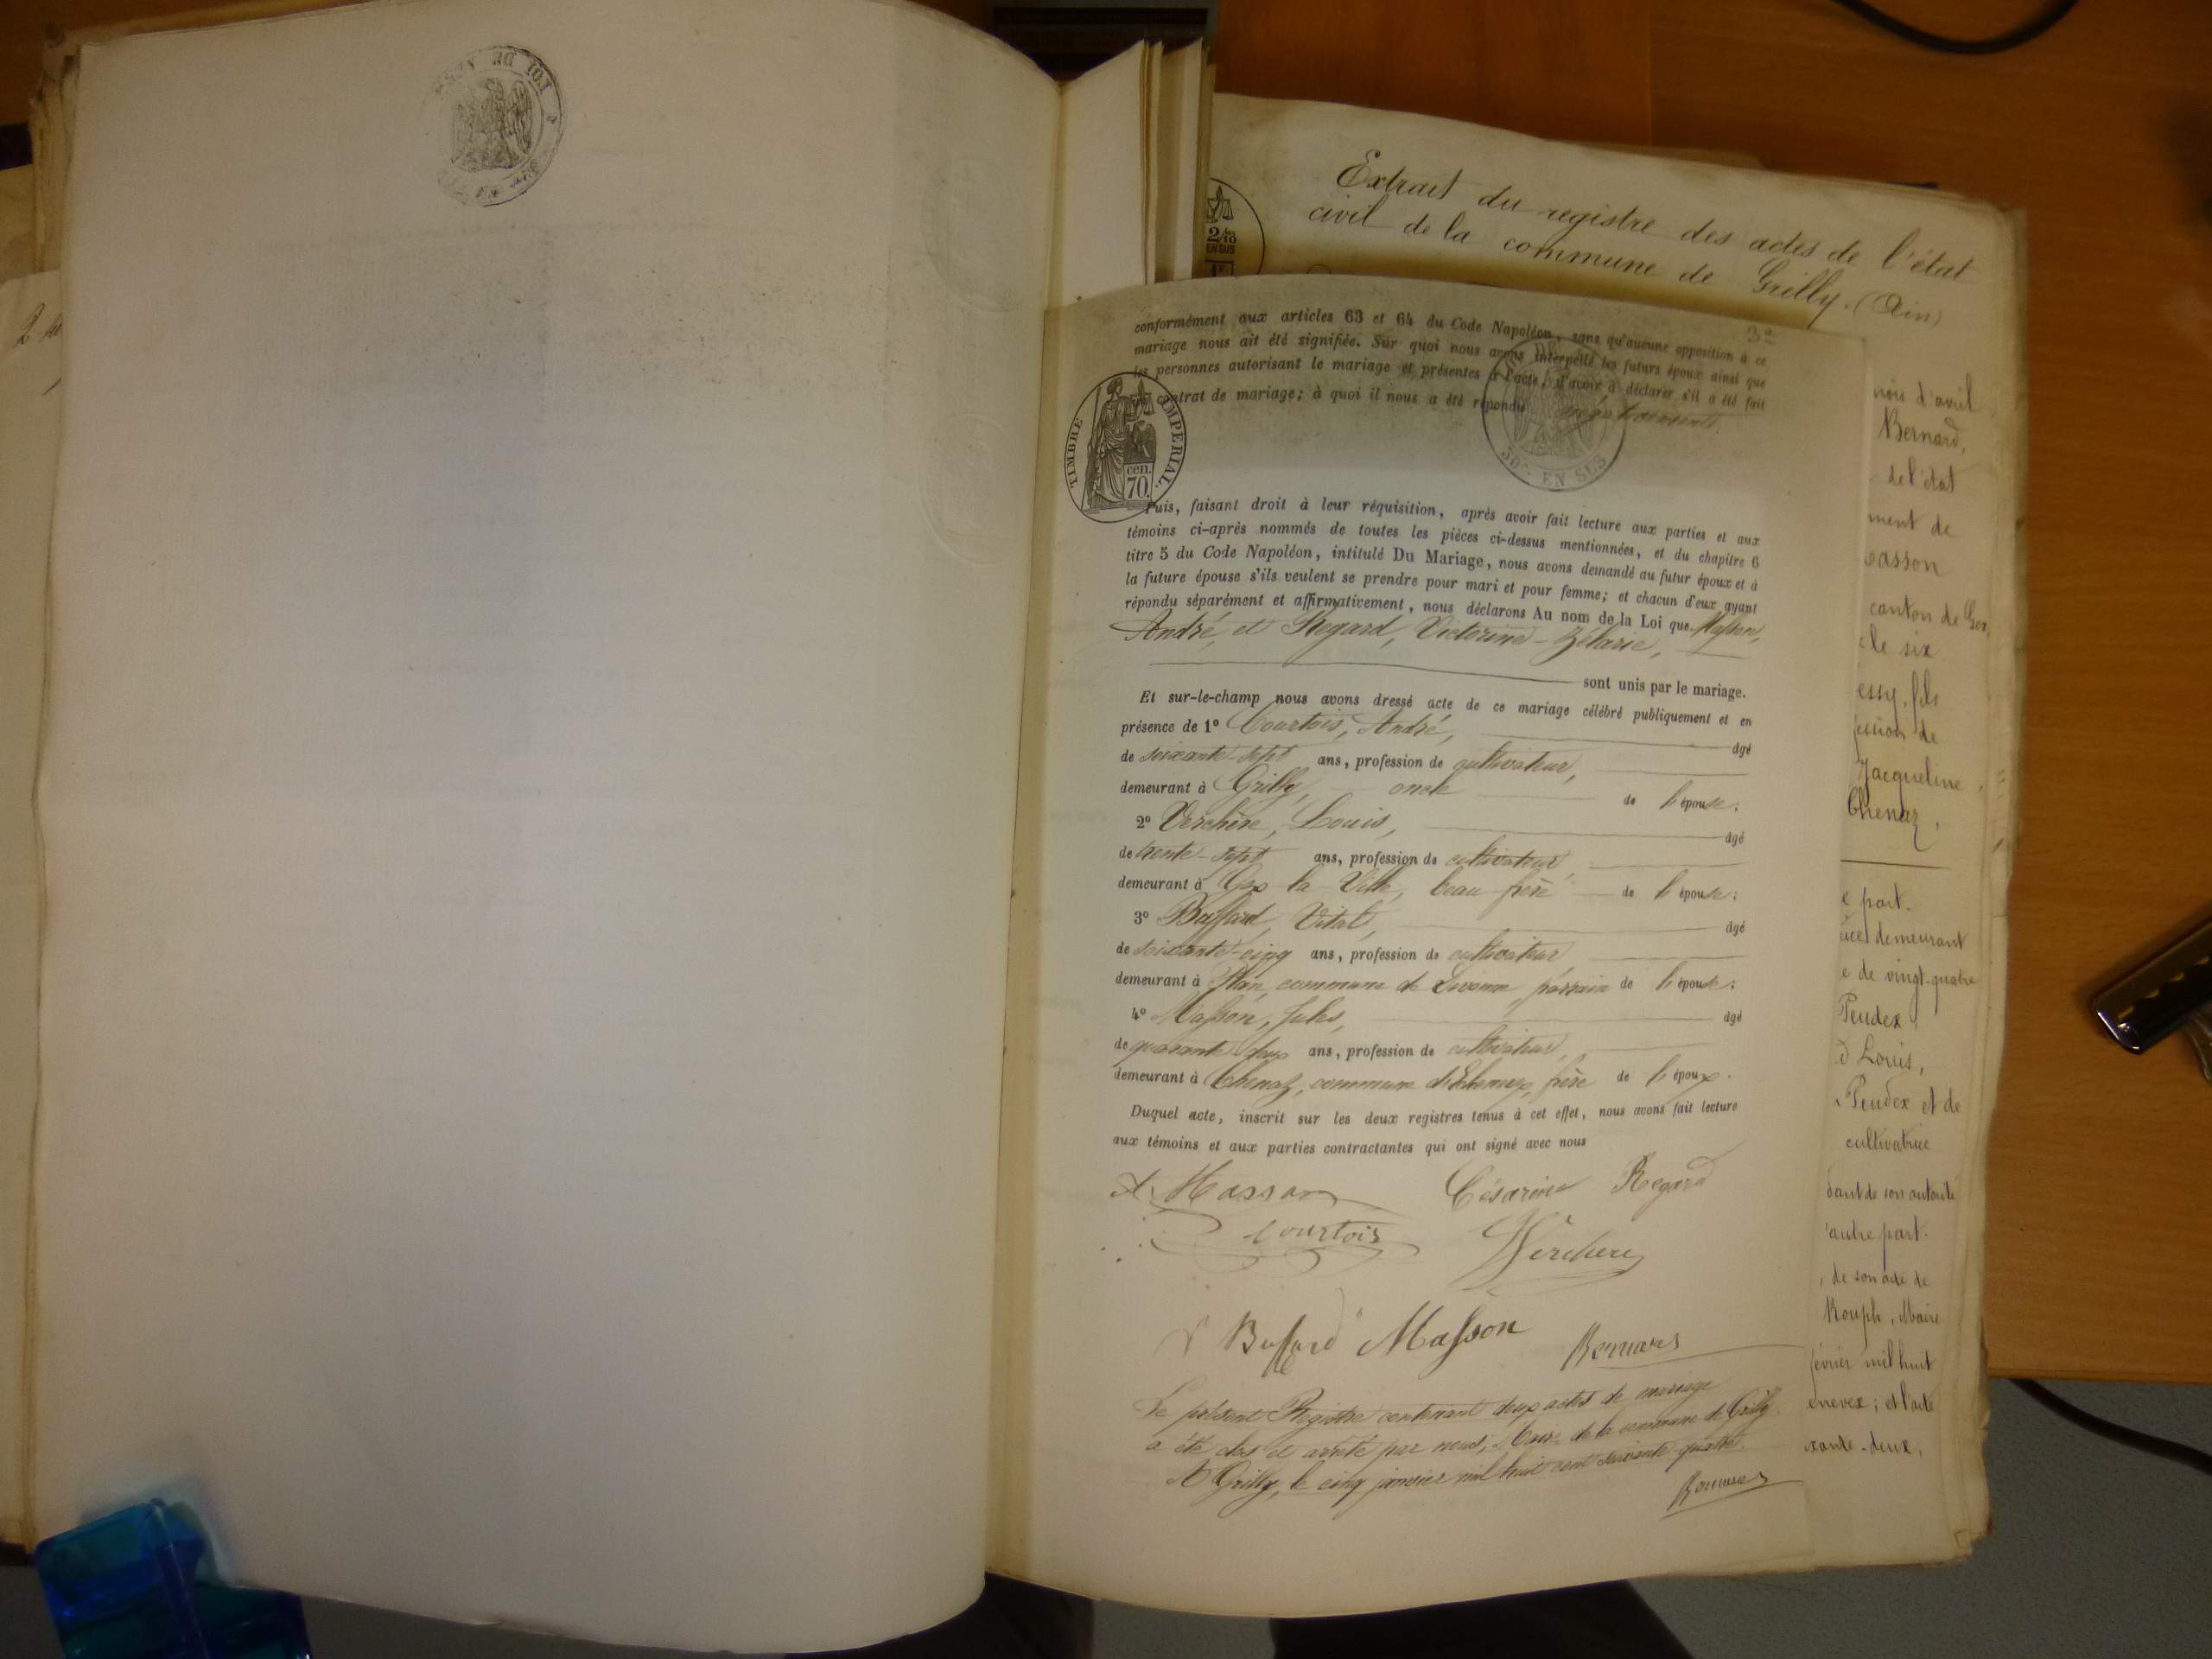 Extrait du registre des actes de l'état
civil de la commune de Grilly. (Ain)
2/10
EN SUS
3e
conformément aux articles 63 et 64 du Code Napoléon, sans qu'aucune opposition à ce
mariage nous ait été signifiée. Sur quoi nous avons interpellé les futurs époux ainsi que
les personnes autorisant le mariage et présentes à l'acte, d'avoir à déclarer s'il a été fait
contrat de mariage; à quoi il nous a été répondu négativement.
TIMBRE IMPERIAL.
cen.
70.
50c. EN SUS
Puis, faisant droit à leur réquisition, après avoir fait lecture aux parties et aux
témoins ci-après nommés de toutes les pièces ci-dessus mentionnées, et du chapitre 6
titre 5 du Code Napoléon, intitulé Du Mariage, nous avons demandé au futur époux et à
la future épouse s'ils veulent se prendre pour mari et pour femme; et chacun d'eux ayant
répondu séparément et affirmativement, nous déclarons Au nom de la Loi que Masson,
André, et Regard, Victorine-Zélarie,
sont unis par le mariage.
Et sur-le-champ nous avons dressé acte de ce mariage célébré publiquement et en
présence de 1º Courtois, André, âgé
de soixante-sept ans, profession de cultivateur,
demeurant à Grilly, oncle de l'épouse;
2º Verchère, Louis, âgé
de trente-sept ans, profession de cultivateur,
demeurant à Gex la Ville, beau-frère de l'épouse;
3º Buffard, Vital, âgé
de soixante-cinq ans, profession de cultivateur,
demeurant à Plan, commune de Divonne parrain de l'épouse;
4º Masson, Jules, âgé
de quarante-deux ans, profession de cultivateur,
demeurant à Chenaz, commune d'Echenevex, frère de l'époux.
Duquel acte, inscrit sur les deux registres tenus à cet effet, nous avons fait lecture
aux témoins et aux parties contractantes qui ont signé avec nous
A. Masson Césarine Regard
Courtois Verchere
Buffard Masson Bernard
Le présent Registre contenant deux actes de mariage
a été clos et arrêté par nous, Maire de la commune de Grilly.
A Grilly, le cinq janvier mil huit cent soixante-quatre.
Bernard
mois d'avril
Bernard,
de l'état
ment de
asson
canton de Gex,
le six
essy, fils
ession de
Jacqueline
Chenaz,
e part.
demeurant
e de vingt-quatre
Peudex
d Louis,
Peudex et de
cultivatrice
dant de son autorité
'autre part.
, de son acte de
Rouph, Maire
février mil huit
enevex; et l'acte
xante-deux,